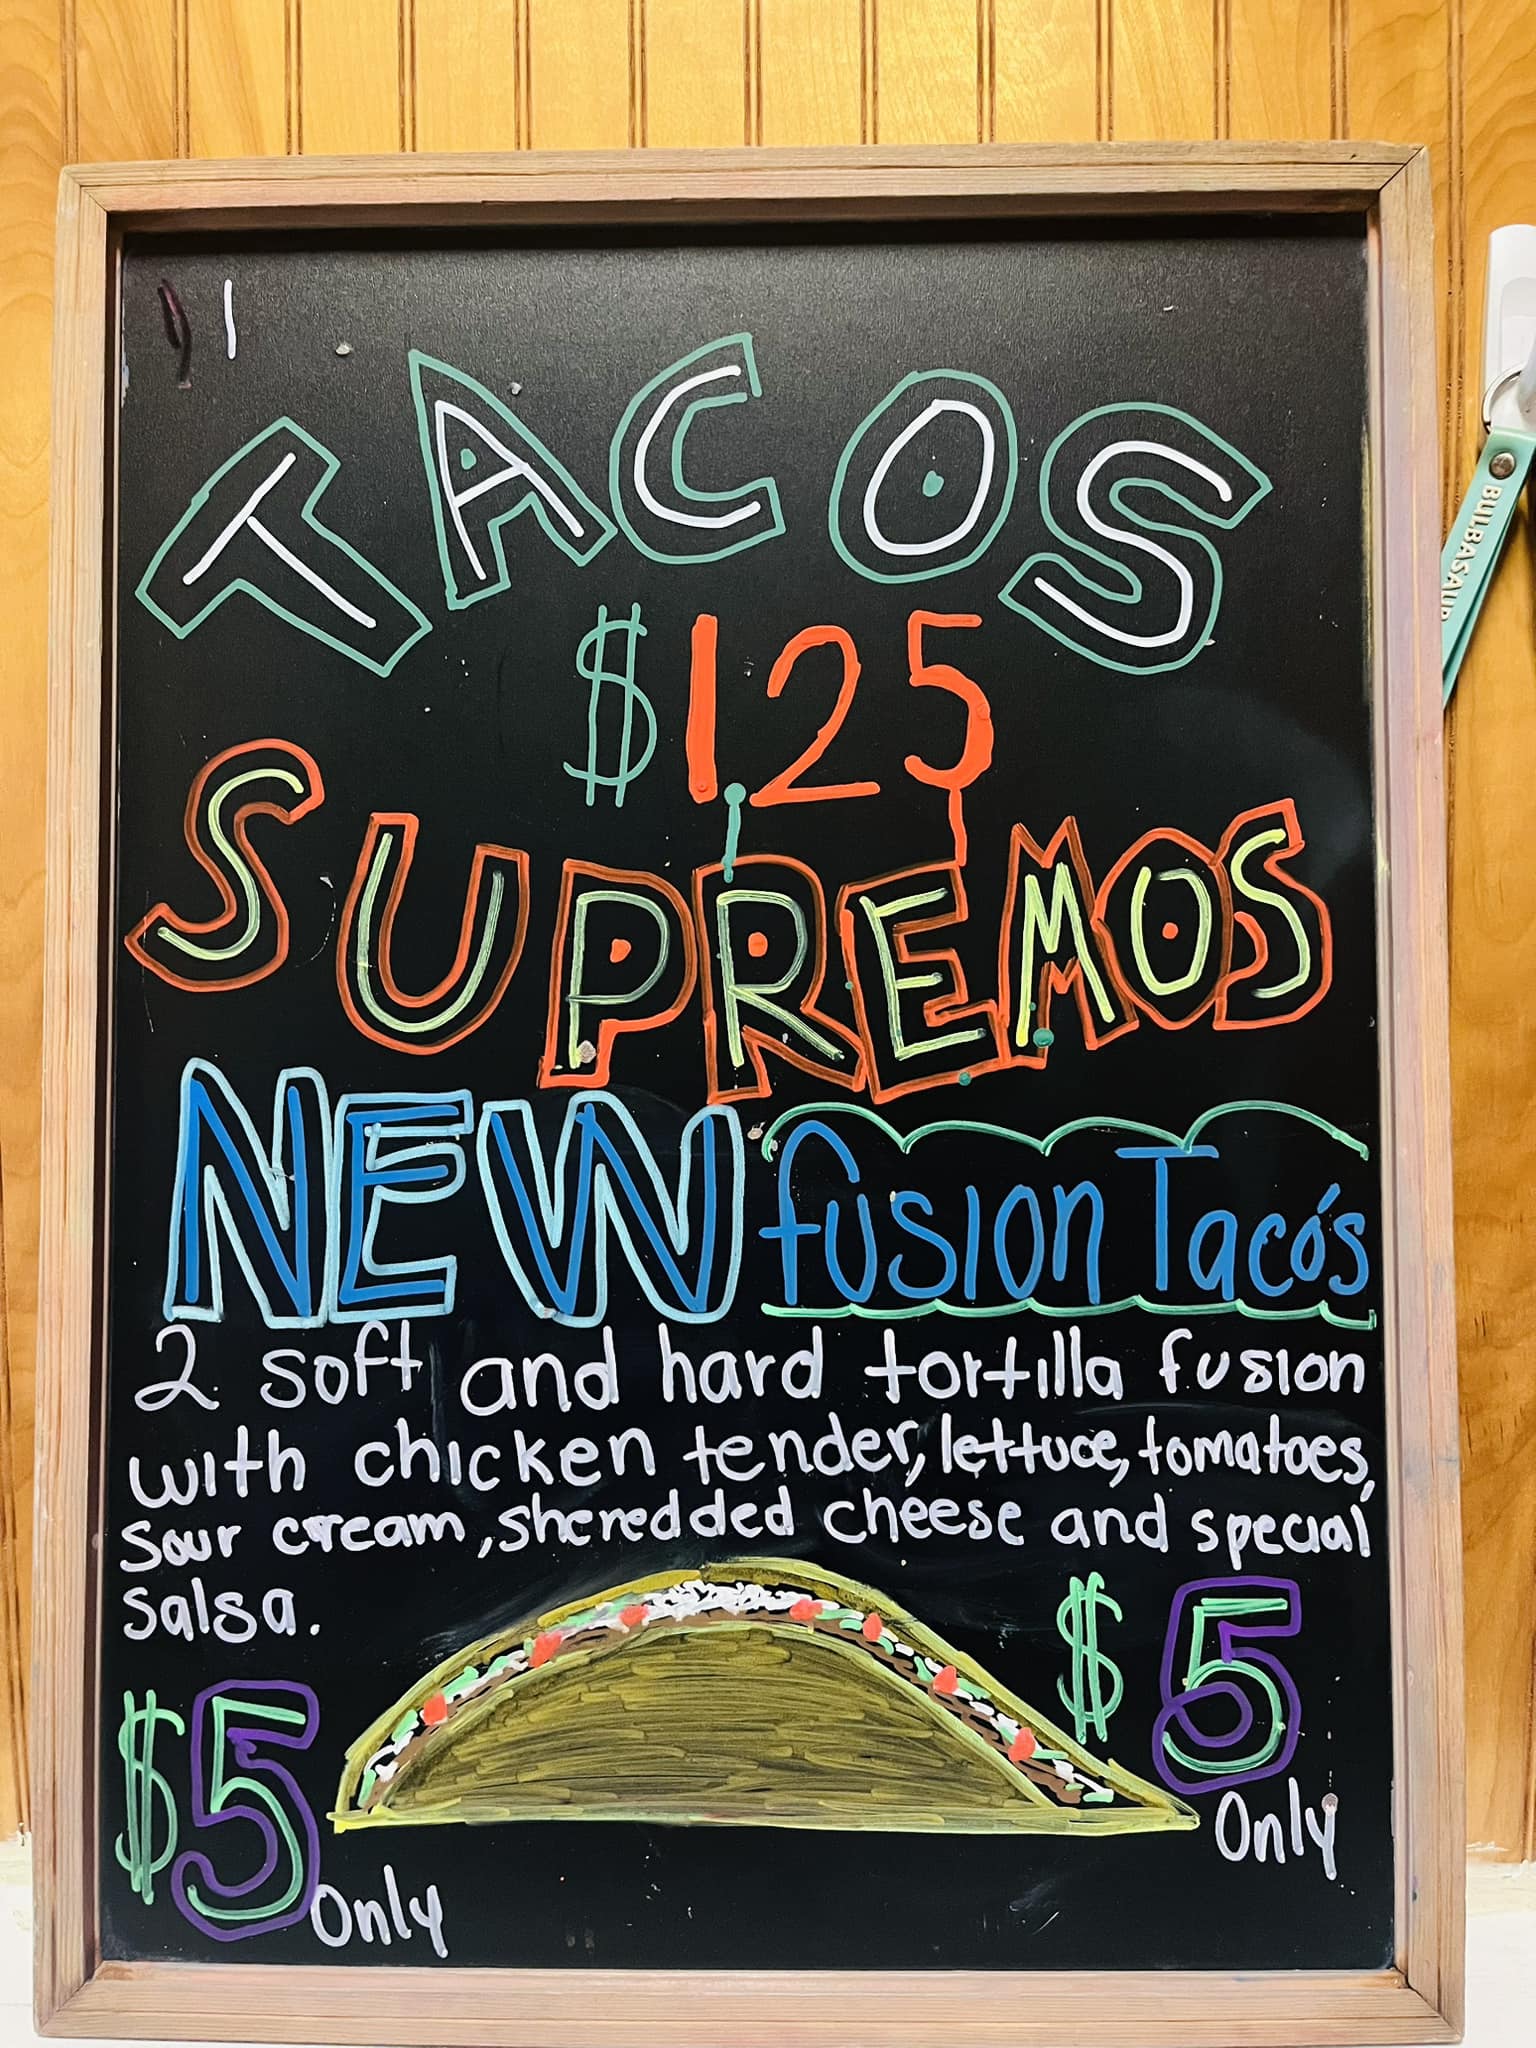 TACOS
$1.25
SUPREMOS
NEW fusion Tacós
2 soft and hard tortilla fusion
with chicken tender, lettuce, tomatoes,
sour cream, sheredded cheese and special
salsa.
$5
Only
$5
Only
BULBASAUR